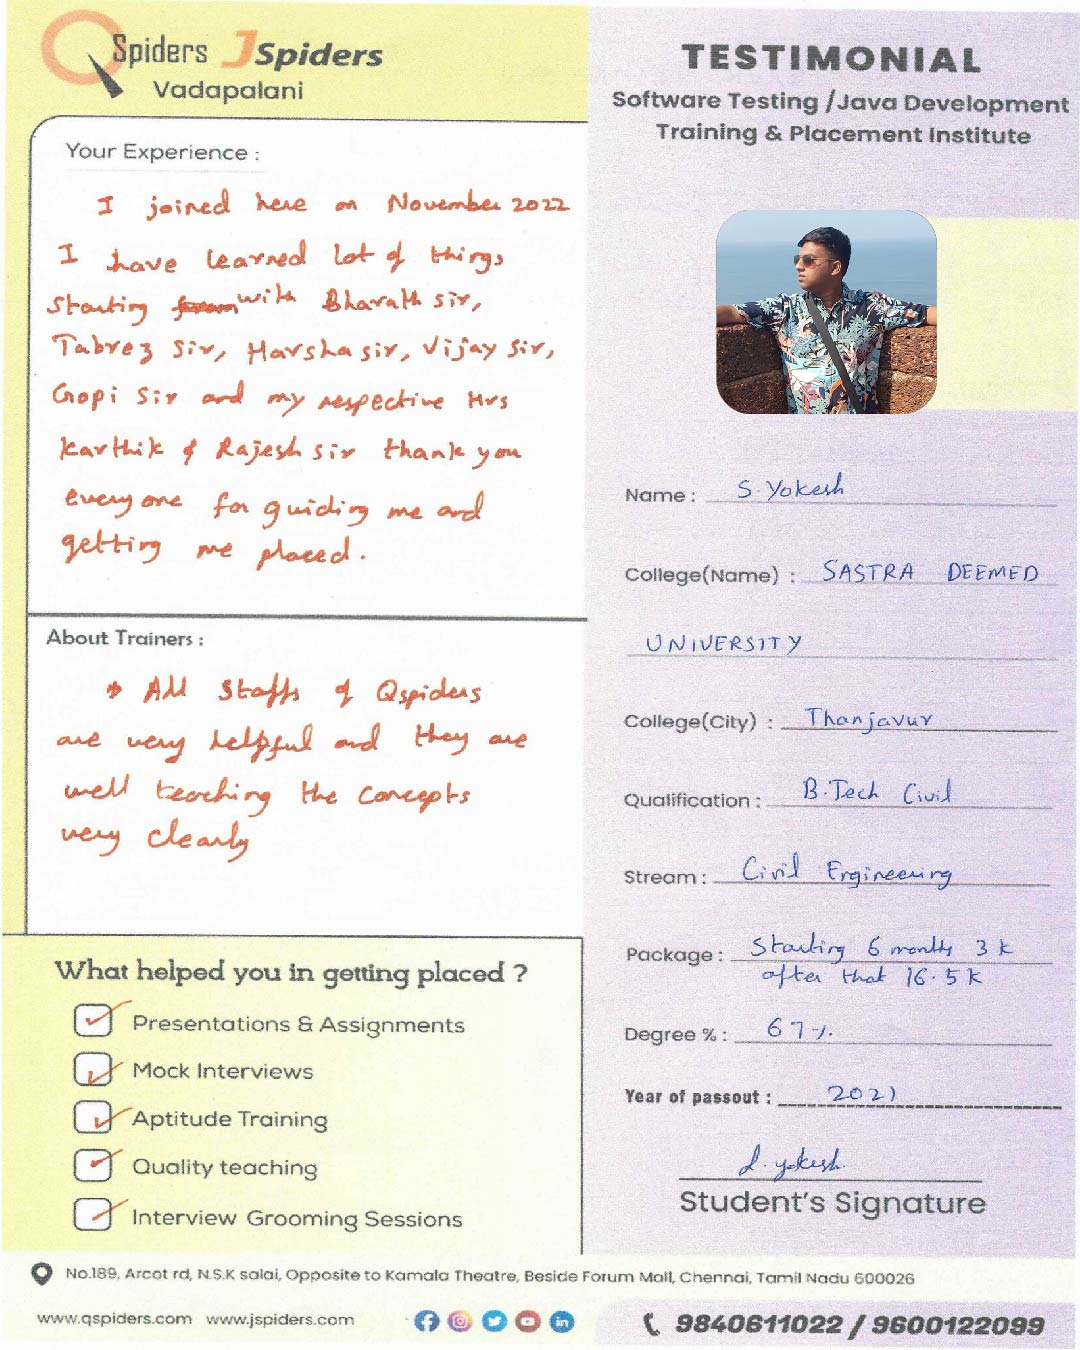 QSpiders JSpiders
Vadapalani
Your Experience :
I joined here on November 2022
I have learned lot of things
Starting from with Bharath sir,
Tabrez Sir, Harsha sir, Vijay Sir,
Gopi Sir and my respective Hrs
Karthik & Rajesh sir thank you
every one for guiding me and
getting me placed.
About Trainers :
All Staffs of Qspiders
are very helpful and they are
well teaching the concepts
very clearly
What helped you in getting placed ?
Presentations & Assignments
Mock Interviews
Aptitude Training
Quality teaching
Interview Grooming Sessions
TESTIMONIAL
Software Testing /Java Development
Training & Placement Institute
Name : S. Yokesh
College(Name) : SASTRA DEEMED
UNIVERSITY
College(City) : Thanjavur
Qualification : B.Tech Civil
Stream : Civil Engineering
Package : Starting 6 months 3 k
after that 16.5 k
Degree % : 67%
Year of passout : 2021
S. yokesh
Student's Signature
No.189, Arcot rd, N.S.K salai, Opposite to Kamala Theatre, Beside Forum Mall, Chennai, Tamil Nadu 600026
www.qspiders.com www.jspiders.com
9840611022 / 9600122099